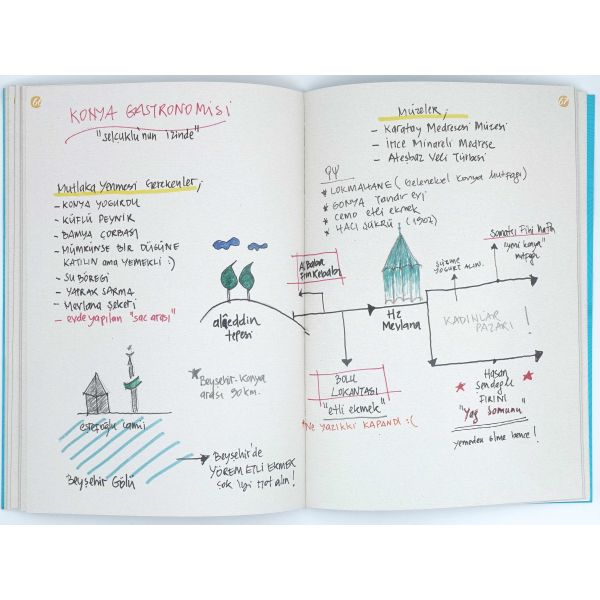 KONYA GASTRONOMİSİ
"selçuklu'nun izinde"
Mutlaka Yenmesi Gerekenler;
- KONYA YOGURDU
- KÜFLÜ PEYNİR
- BAMYA ÇORBASI
- MÜMKÜNSE BİR DÜĞÜNE
KATILIN ama YEMEKLİ :)
- SU BÖREĞİ
- YAPRAK SARMA
- Mevlana Şekeri
- evde yapılan "sac arası"
alâeddin
tepesi
* Beyşehir-Konya
arası 90 km.
eşrefoğlu camii
Beyşehir Gölü
Beyşehir'de
YÖREM ETLİ EKMEK
çok iyi not alın!
MÜZELER;
- Karatay Medresesi Müzesi
- İnce Minareli Medrese
- Ateşbaz Veli Türbesi
* LOKMAHANE (Geleneksel Konya Mutfağı)
* KONYA Tandır evi
* Cemo etli ekmek
* HACI ŞÜKRÜ (1902)
Ali Baba
Fırın Kebabı
Hz
Mevlana
SÜZME
YOĞURT ALIN.
Somatçı Fihi Ma Fih
"yeni konya"
mutfağı
KADINLAR
PAZARI !
BOLU
LOKANTASI
"etli ekmek"
Ne yazıkki KAPANDI :(
Hasan
Şendağlı
FIRINI
"Yağ Somunu"
yemeden ölme bence!